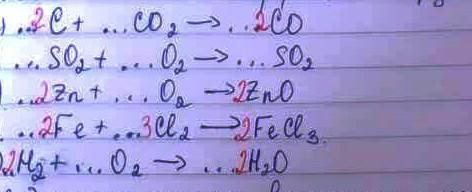 ) ...2C + ...CO₂ → ..2CO
...SO₂ + ... O₂ → ... SO₂
) ...2Zn + .... O₂ → 2ZnO
...2Fe + ...3Cl₂ → 2FeCl₃.
)2H₂ + ...O₂ → ...2H₂O